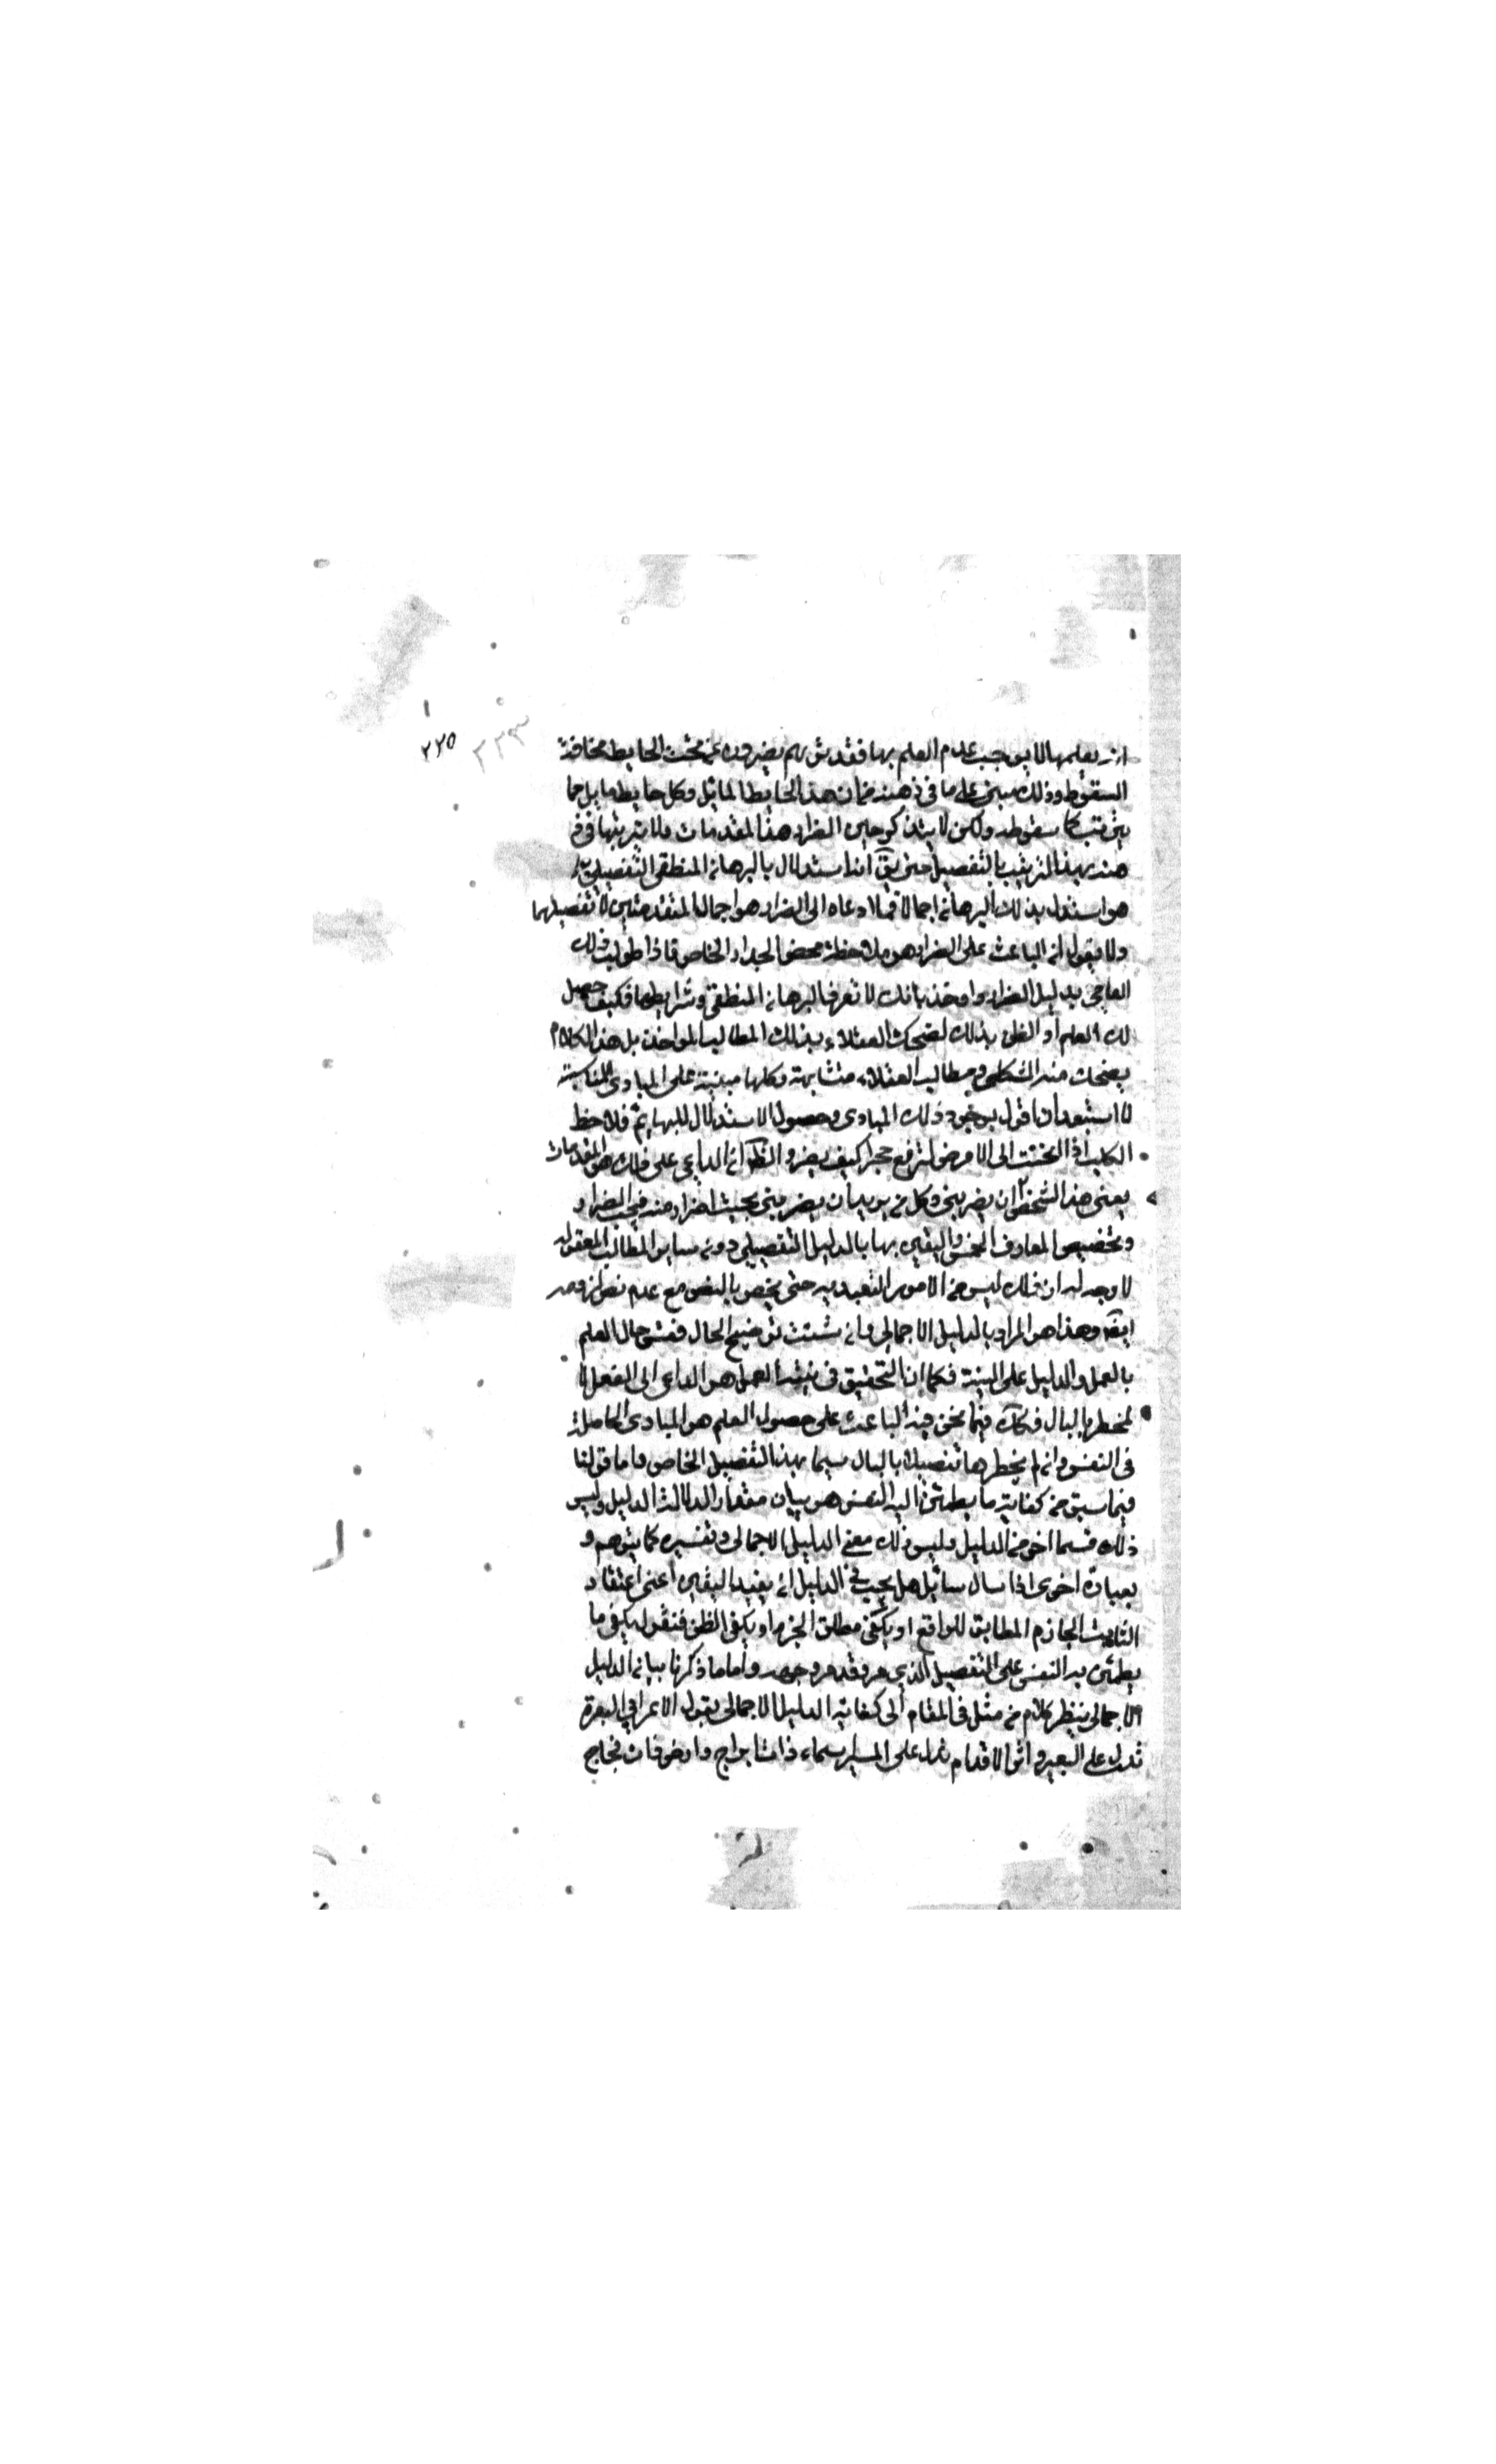 ٢٢٥ ٢٢٣
يعلمها لا يوجب عدم العلم بها فقد نرى يفرون عن تحت الحايط مخافة
السقوط وذلك مبنى على ما فى ذهنه من ان هذا الحايط المائل وكل حايط مايل مما
يترتب سقوطه ولكن لا يتذكر حين الفرار هذا المقدمات ولا يرتبها فى
هذه بهذا الترتيب بالتفصيل حتى يق انه استدلال بالبرهان المنطقى التفصيلى بل
هو استدل بذلك البرهان اجمالا فما دعاه الى الفرار هو اجمال المقدمتين لا تفصيلهما
ولا نقول ان الباعث على الفرار هو ملاحظة محض الجدار الخاص فاذا طولب ذلك
العامى بدليل الفرار واوخذ بانك لا تعرف البرهان المنطقى وشرايطها فكيف حصل
لك العلم او الظن بذلك لضحك العقلاء بذلك المطالب المواخذ بل هذا الكلام
يضحك منه الثكلى ومطالب العقلاء متشابهة وكلها مبنية على المبادى
لا استبعد ان اقول بوجود ذلك المبادى وحصول الاستدلال للبهايم فلاحظ
الكلب اذا انحنيت الى الارض لترفع حجرا كيف يفر والظ ان الداعى على ذلك هو المقدمات
يعنى هذا الشخص ان يضربنى وكل من يريد ان يضربنى يجب الفرار منه فيجب الفرار
وتخصيص المعارف الخمس واليقين بها بالدليل التفصيلى دون ساير المطالب المعقولة
لا وجه له اذ ذلك ليس من الامور التعبدية حتى يخص بالنص مع عدم نص
ايضا وهذا هو المراد بالدليل الاجمالى وان شئت توضيح الحال ففتش حال العلم
بالعمل والدليل على النية فكما ان التحقيق فى نية العمل هو الداعى الى الفعل لا
المخطر بالبال فكك فيما نحن فيه الباعث على حصول العلم هو المبادى الحاصلة
فى النفس وان لم يخطرها تفصيلا بالبال سيما بهذا التفصيل الخاص واما قولنا
فيما سبق من كفاية ما يطمئن اليه النفس هو بيان مقدار الدلالة الدليل وليس
ذلك قسما اخر من الدليل وليس ذلك معنى الدليل الاجمالى وتفسيره كما يتوهم و
بعبارة اخرى اذا سال سايل هل يجب فى الدليل ان يفيد اليقين اعنى اعتقاد
الثابت الجازم المطابق للواقع او يكفى مطلق الجزم او يكفى الظن فنقول يكفى ما
يطمئن به النفس على التفصيل الذى مر وقد مر وجهه واما ما ذكرنا بيان الدليل
الاجمالى ينظر كلام من مثل فى المقام الى كفاية الدليل الاجمالى بقول الاعرابى البعرة
تدل على البعير واثر الاقدام تدل على المسير سماء ذات ابراج وارض ذات فجاج